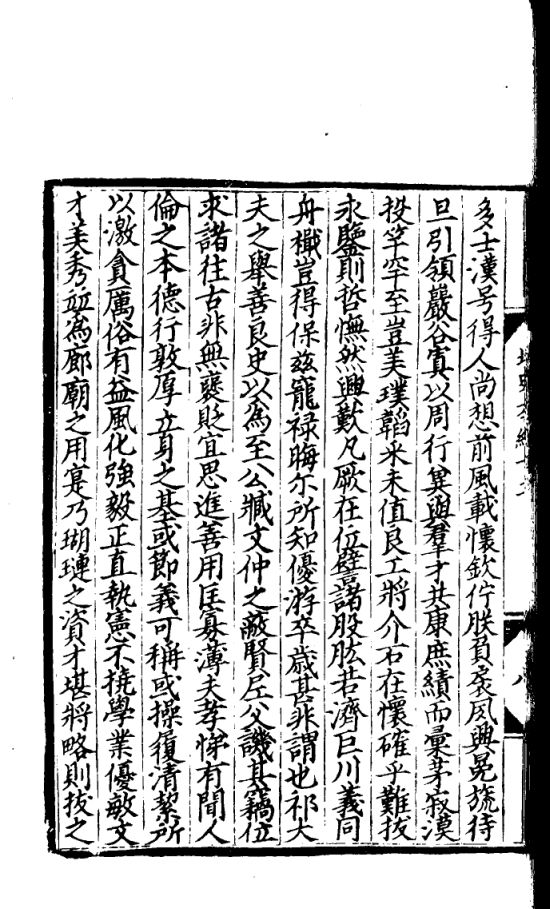 多士漢号得人尚想前風載懷欽佇朕負扆夙興冕旒待
旦引領巖谷寘以周行冀與羣才共康庶績而彙茅寂漠
投竿罕至豈美璞韜采未值良工將介石在懷確乎難拔
永鑒則哲憮然興歎凡厥在位譬諸股肱若濟巨川義同
舟檝豈得保兹寵禄晦尔所知優游卒歳甚非謂也祁大
夫之舉善良史以為至公臧文仲之蔽賢尼父譏其竊位
求諸往古非無襃貶宜思進善用匡寡薄夫孝悌有聞人
倫之本德行敦厚立身之基或節義可稱或操履清㓗所
以激貪厲俗有益風化強毅正直執憲不撓學業優敏文
才美秀竝為廊廟之用寔乃瑚璉之資才堪將略則拔之
八